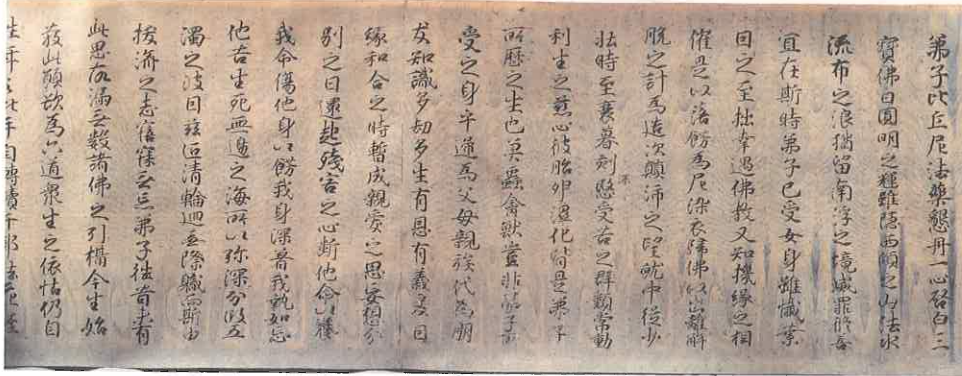 弟子比丘尼法藥懇丹一心啓白三
寶佛日圓明之耀雖隱西傾之山法水
流布之浪猶留南浮之境滅罪修善
宜在斯時弟子已受女身雖慚業
因之至拙幸遇佛教又知機緣之相
催是以落餝為尼染衣歸佛以出離解
脱之計為造次顛沛之望就中從少
壯時至衰暮剋愍受苦之群類常動
利生之慈心彼胎卵濕化皆是弟子
所歷之生也莫蟲禽獸豈非弟子所
受之身乎遞為父母親族代為朋
友知識多劫多生有恩有義是以因
緣和合之時暫成親愛之思妄想分
別之日還起殘害之心斷他命以養
我命傷他身以餝我身深著我執如忘
他苦生死無邊之海所以弥深分段五
濁之波因玆洹清輪迴無際職而斯由
拔濟之志寤寐無忘弟子徃昔未有
此思有漏無數諸佛之引攝今生始
發此願欲為六道眾生之依怙仍自